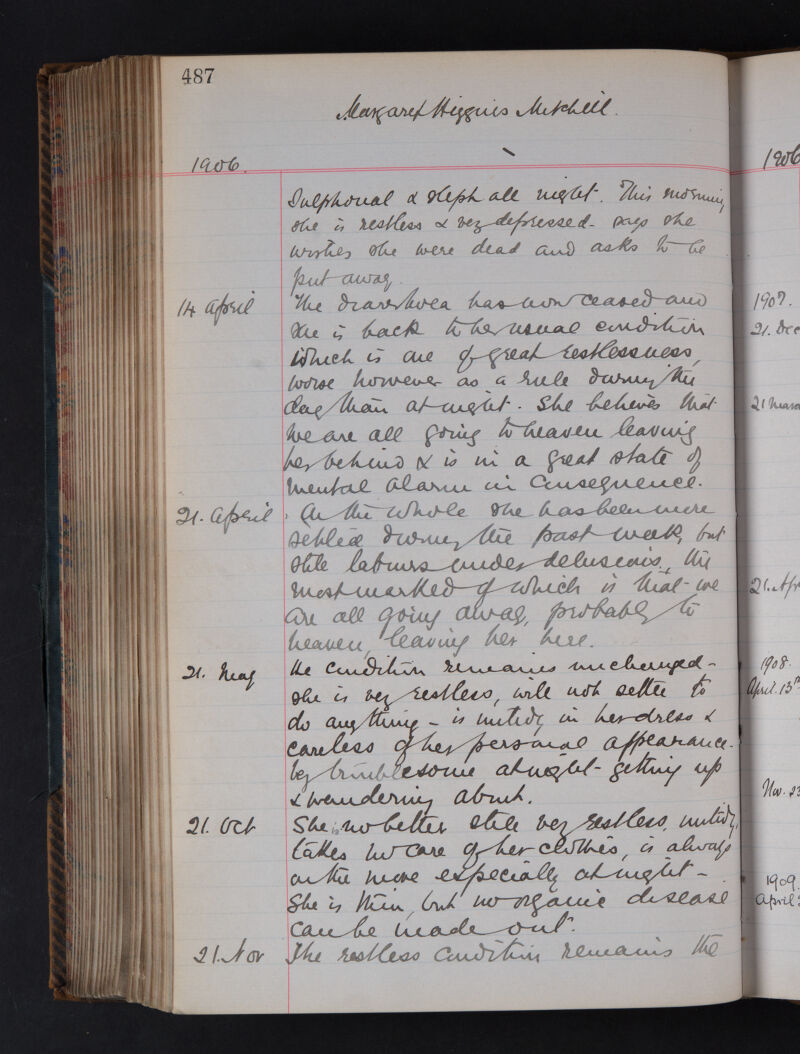 487
Margaret Higgins Mitchell.
1906.
Sulphonal & slept all night. This morning
she is restless & very depressed - says she
wishes she were dead and asks to be
put away.
14 April The diarrhoea has now ceased and
she is back to her usual condition
which is one of great restlessness,
worse however as a rule during the
day than at night. She believes that
we are all going to heaven leaving
her behind & is in a great state of
mental alarm in consequence.
21. April On the whole she has been more
settled during the past week, but
still labours under delusions, the
most marked of which is that we
are all going away, probably to
heaven, leaving her here.
21. May The condition remains unchanged -
she is very restless, will not settle to
do anything - is untidy in her dress &
careless of her personal appearance -
very troublesome at night - getting up
& wandering about.
21. Oct She is no better still very restless, untidy,
takes no care of her clothes, is always
on the move especially at night -
She is thin, but no organic disease
can be made out.
21. Nov The restless condition remains the
1906
1907.
21. Dec
21 March
21. Apr
1908.
April. 13th
Nov. 23
1909.
April 2